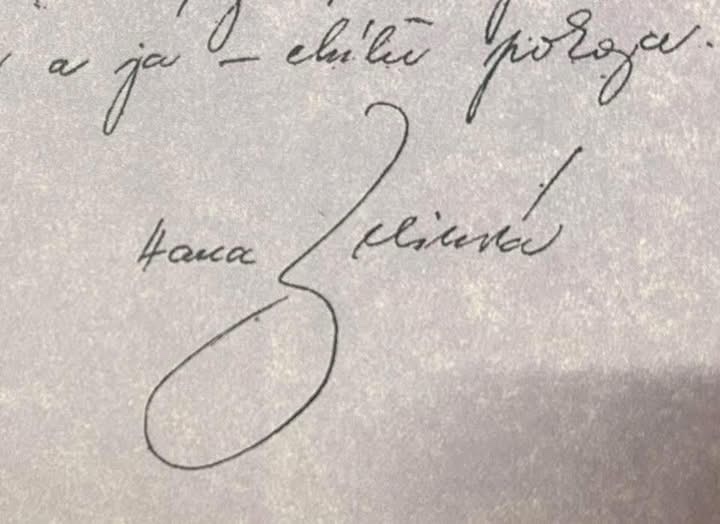 a já – chíľu pokoja.
Hana Zelinová